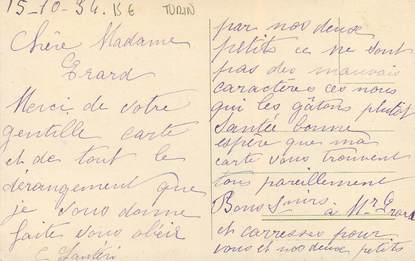 15-10-34. BE TURIN
Chère Madame
Erard
Merci de votre
gentille carte
et de tout le
dérangement que
je vous donne
faite vous obéir
par nos deux
petits ce ne sont
pas des mauvais
caractères ces nous
qui les gâtons plutôt
Santée bonne
espère que ma
carte vous trouvent
tous pareillement
Bons jours à Mr Erard
et carresses pour
vous et nos deux petits